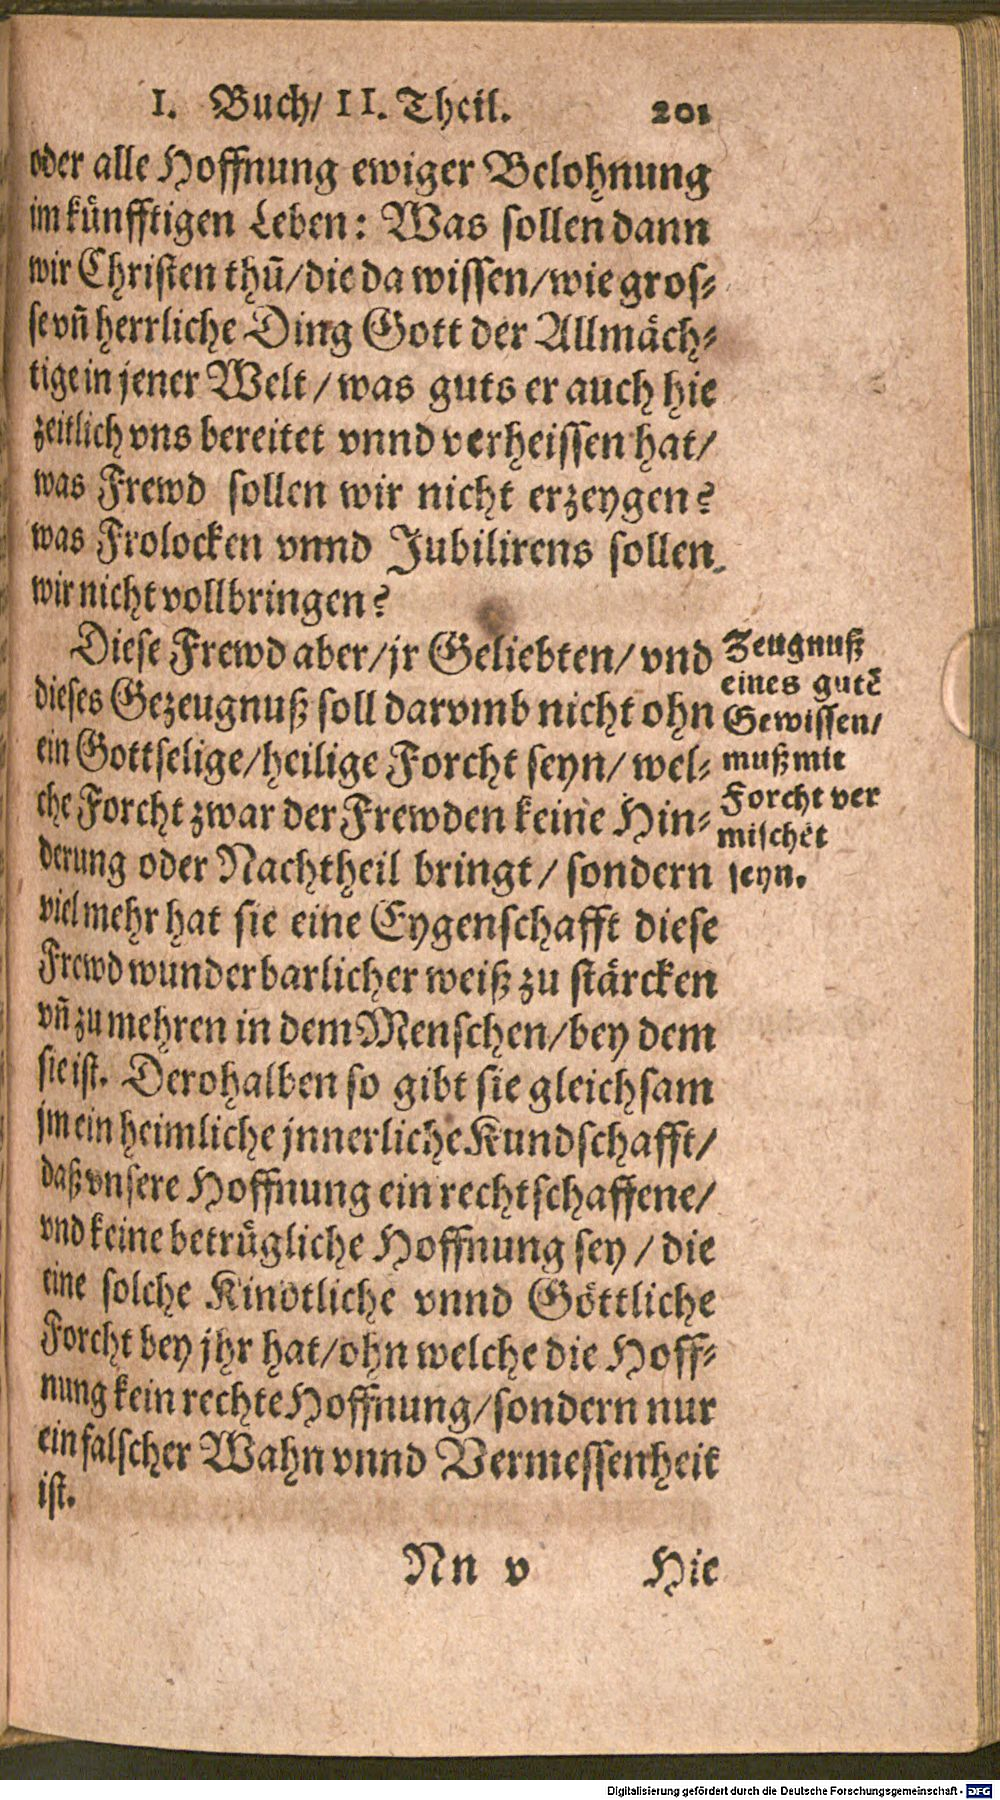 I. Buch/ II. Theil. 201
oder alle Hoffnung ewiger Belohnung
im künfftigen Leben: Was sollen dann
wir Christen thũ/die da wissen/wie gros-
se vñ herrliche Ding Gott der Allmäch-
tige in jener Welt/was guts er auch hie
zeitlich vns bereitet vnnd verheissen hat/
was Frewd sollen wir nicht erzeygen?
was Frolocken vnnd Jubilirens sollen
wir nicht vollbringen?
Diese Frewd aber/jr Geliebten/vnd
dieses Gezeugnuß soll darvmb nicht ohn
ein Gottselige/heilige Forcht seyn/wel-
che Forcht zwar der Frewden keine Hin-
derung oder Nachtheil bringt/sondern
viel mehr hat sie eine Eygenschafft diese
Frewd wunderbarlicher weiß zu stärcken
vñ zu mehren in dem Menschen/bey dem
sie ist. Derohalben so gibt sie gleichsam
jm ein heimliche jnnerliche Kundschafft/
daß vnsere Hoffnung ein rechtschaffene/
vnd keine betrügliche Hoffnung sey/die
eine solche Kindtliche vnnd Göttliche
Forcht bey jhr hat/ohn welche die Hoff-
nung kein rechte Hoffnung/sondern nur
ein falscher Wahn vnnd Vermessenheit
ist.
Zeugnuß
eines gutẽ
Gewissen/
muß mit
Forcht ver
mischet
seyn.
Nn v Hie
Digitalisierung gefördert durch die Deutsche Forschungsgemeinschaft - DFG